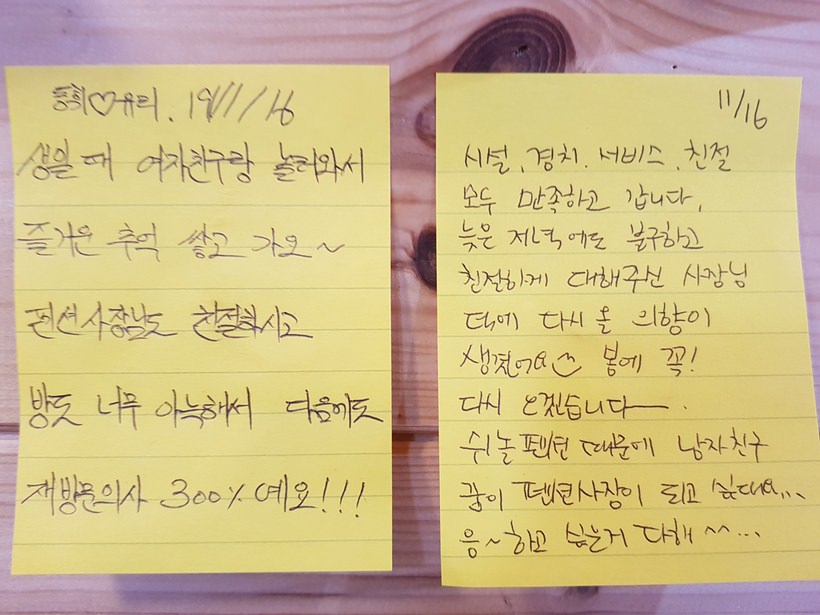 동희♡유리. 19/11/16
생일 때 여자친구랑 놀러와서
즐거운 추억 쌓고 가요~
펜션사장님도 친절하시고
방도 너무 아늑해서 다음에도
재방문의사 300% 예요!!!
11/16
시설, 경치. 서비스, 친절
모두 만족하고 갑니다,
늦은 저녁에도 불구하고
친절하게 대해주신 사장님
덕에 다시 올 의향이
생겼어요 봄에 꼭!
다시 오겠습니다—.
쉬놀펜션 때문에 남자친구
꿈이 펜션사장이 되고 싶대요...
응~하고 싶은거 다해 ^^...